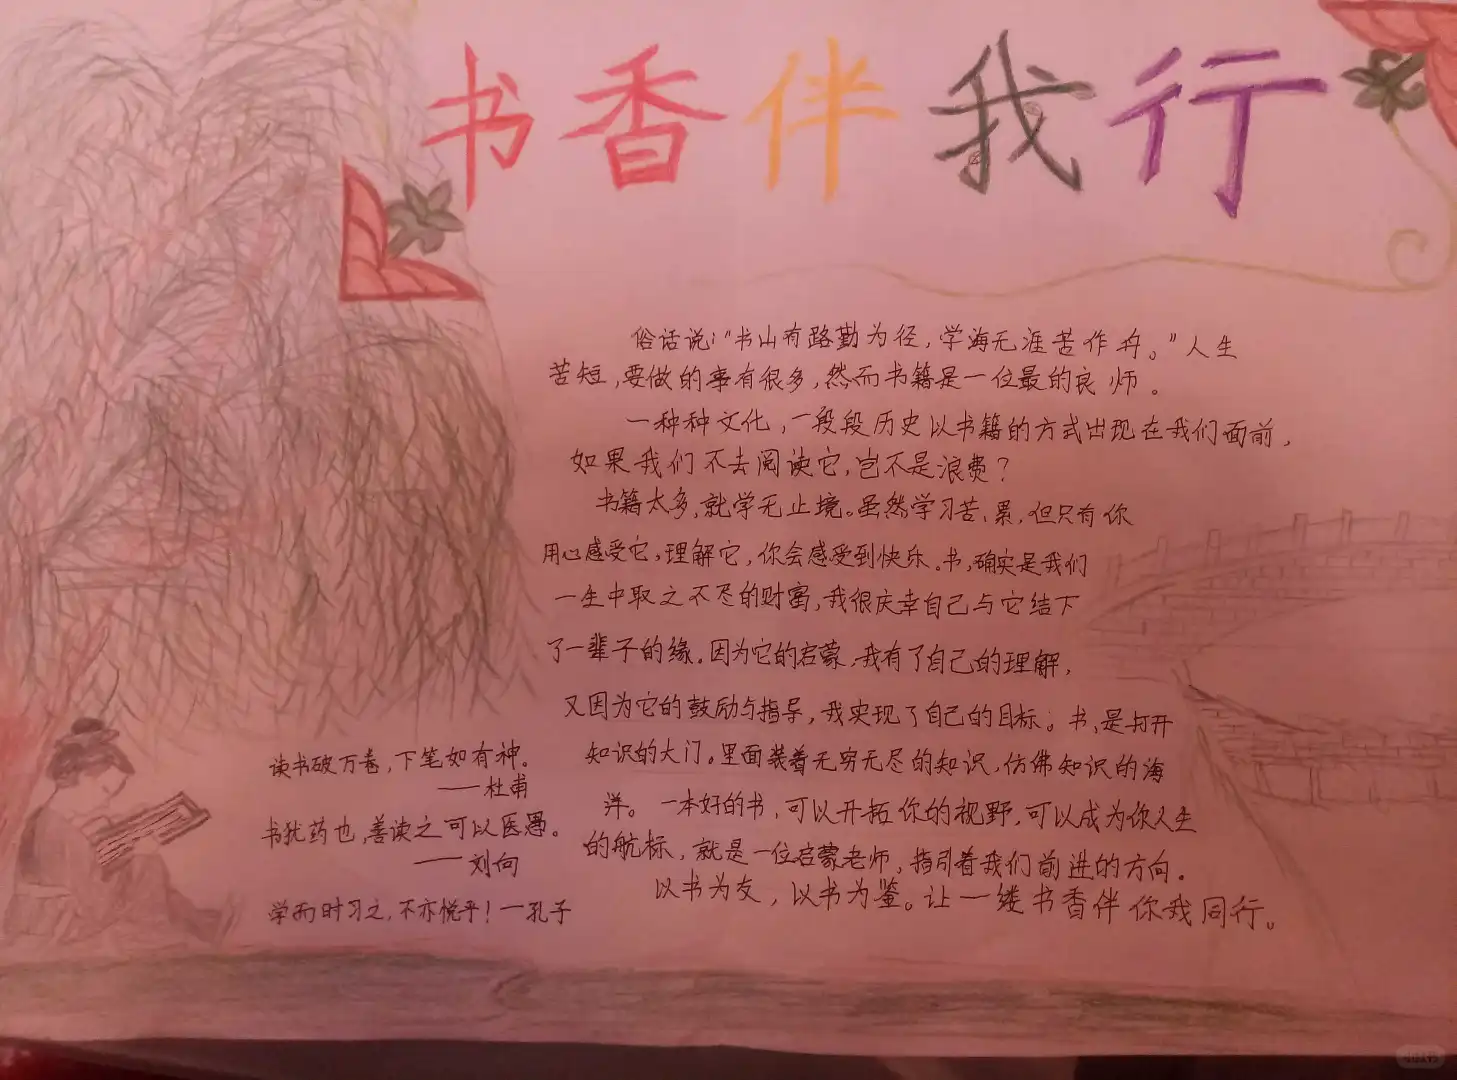 书香伴我行
俗话说:"书山有路勤为径,学海无涯苦作舟。"人生
苦短,要做的事有很多,然而书籍是一位最的良师。
一种种文化,一段段历史以书籍的方式出现在我们面前,
如果我们不去阅读它,岂不是浪费?
书籍太多,就学无止境。虽然学习苦、累,但只有你
用心感受它,理解它,你会感受到快乐。书,确实是我们
一生中取之不尽的财富,我很庆幸自己与它结下
了一辈子的缘。因为它的启蒙,我有了自己的理解,
又因为它的鼓励与指导,我实现了自己的目标。书,是打开
知识的大门。里面装着无穷无尽的知识,仿佛知识的海
洋。一本好的书,可以开拓你的视野,可以成为你人生
的航标,就是一位启蒙老师,指引着我们前进的方向。
以书为友,以书为鉴。让一缕书香伴你我同行。
读书破万卷,下笔如有神。
——杜甫
书犹药也,善读之可以医愚。
——刘向
学而时习之,不亦悦乎!—孔子
小红书